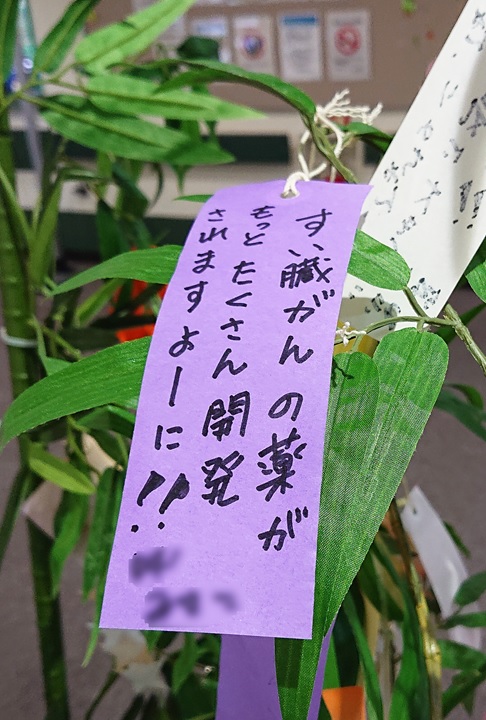 すい臓がんの薬が
もっとたくさん開発
されますよーに!!